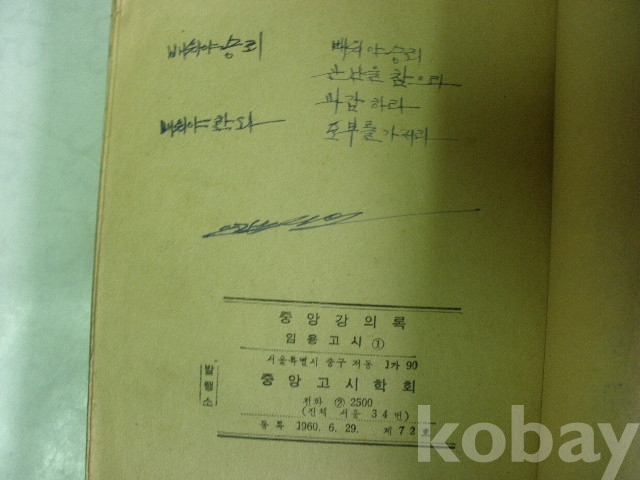 배워야 승리
배워야 승리
곤난을 참으라
하라
배워야 한다
포부를 가저라
중앙강의록
임용고시 ①
서울특별시 중구 저동 1가 90
발행소
중앙고시학회
전화 ② 2500
(진체 서울 34번)
등록 1960. 6. 29. 제72호
kobay